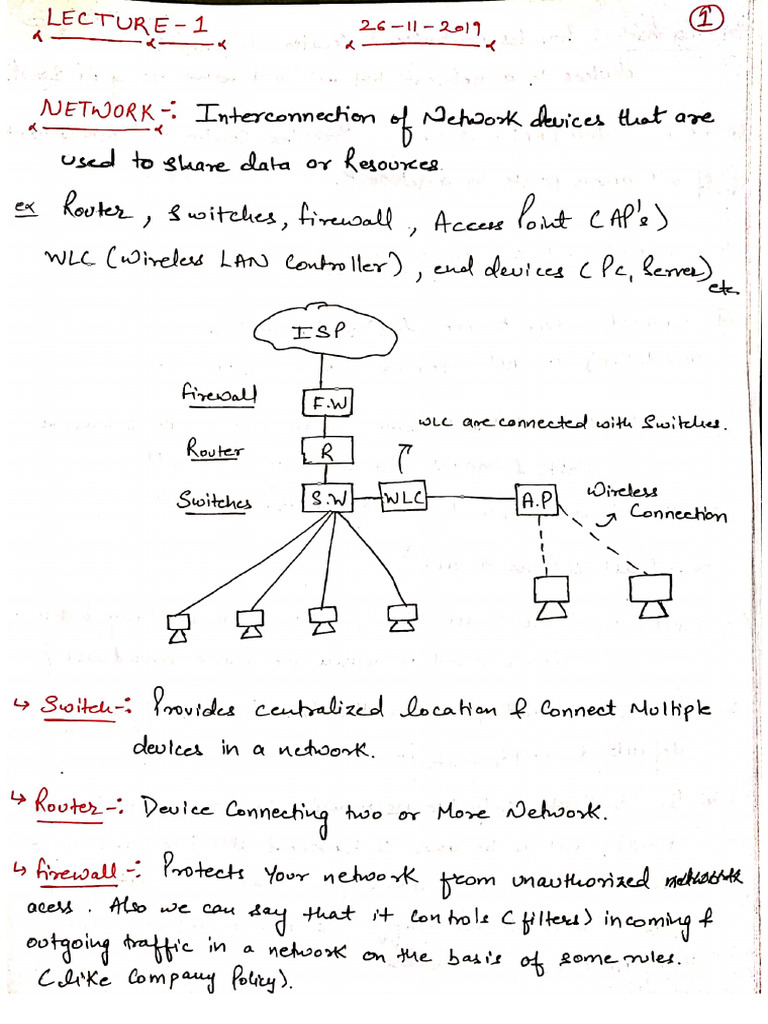 LECTURE-1 26-11-2019 1
NETWORK-: Interconnection of Network devices that are
used to share data or Resources.
ex Router, Switches, firewall, Access Point (AP's)
WLC (Wireless LAN Controller), end devices (Pc, Server)
etc
ISP
firewall F.W
WLC are connected with Switches.
Router R
Switches S.W WLC A.P Wireless
Connection
↳ Switch-: Provides centralized location & Connect Multiple
devices in a network.
↳ Router-: Device Connecting two or More Network.
↳ firewall-: Protects Your network from unauthorized
acess. Also we can say that it controls (filters) incoming &
outgoing traffic in a network on the basis of some rules.
(like Company Policy).